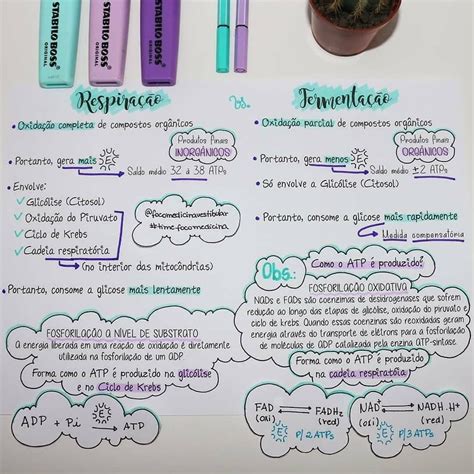 STABILO BOSS
ORIGINAL
STABILO BOSS
ORIGINAL
STABILO BOSS
ORIGINAL
Respiração
vs.
Fermentação
• Oxidação completa de compostos orgânicos
Produtos finais
INORGÂNICOS
• Portanto, gera mais E
Saldo médio 32 à 38 ATPs
• Envolve:
✓ Glicólise (Citosol)
✓ Oxidação do Piruvato
✓ Ciclo de Krebs
✓ Cadeia respiratória
(no interior das mitocôndrias)
@focomedicinavestibular
• Portanto, consome a glicose mais lentamente
FOSFORILAÇÃO A NÍVEL DE SUBSTRATO
A energia liberada em uma reação de oxidação é diretamente
utilizada na fosforilação de um ADP.
Forma como o ATP é produzido na glicólise
e no Ciclo de Krebs
ADP + Pi E ATP
• Oxidação parcial de compostos orgânicos
Produtos finais
ORGÂNICOS
• Portanto, gera menos E
Saldo médio ±2 ATPs
• Só envolve a Glicólise (Citosol)
• Portanto, consome a glicose mais rapidamente
Medida compensatória
Obs.:
Como o ATP é produzido?
FOSFORILAÇÃO OXIDATIVA
NADs e FADs são coenzimas de desidrogenases que sofrem
redução ao longo das etapas de glicólise, oxidação do piruvato e
ciclo de krebs. Quando essas coenzimas são reoxidadas geram
energia através do transporte de elétrons para a fosforilação
de moléculas de ADP catalizada pela enzima ATP-sintase.
Forma como o ATP é produzido
na cadeia respiratória
FAD ⇌ FADH₂
(oxi) (red)
E P/2 ATPs
NAD⁺ ⇌ NADH.H⁺
(oxi) (red)
E P/3 ATPs